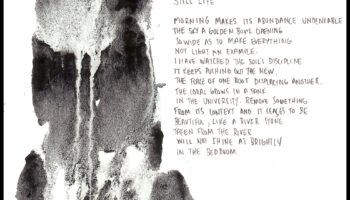 STILL LIFE
MORNING MAKES ITS ABUNDANCE UNDENIABLE
THE SKY A GOLDEN BOWL OPENING
SO WIDE AS TO MAKE EVERYTHING
NOT LIGHT AN EXAMPLE.
I HAVE WATCHED THE SOIL'S DISCIPLINE
IT KEEPS PUSHING OUT THE NEW,
THE FORCE OF ONE ROOT DISPLACING ANOTHER.
THE CORAL GROWS IN A TANK
IN THE UNIVERSITY. REMOVE SOMETHING
FROM ITS CONTEXT AND IT CEASES TO BE
BEAUTIFUL, LIKE A RIVER STONE
TAKEN FROM THE RIVER
WILL NOT SHINE AS BRIGHTLY
IN THE BEDROOM.